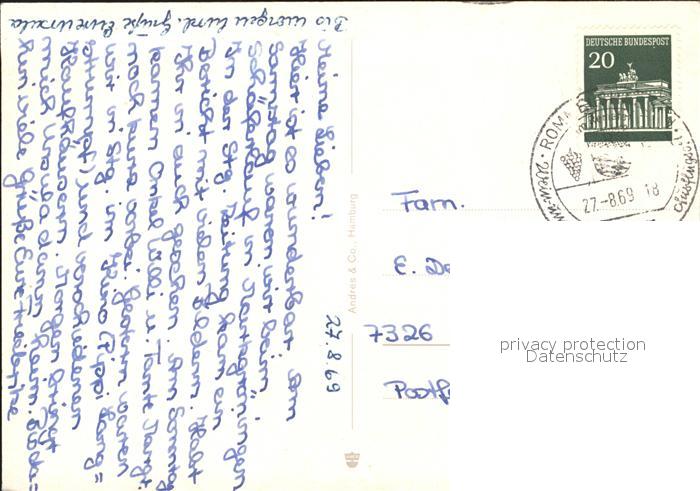 Meine Lieben!
Hier ist es wunderbar. Am
Samstag waren wir beim
Schäferlauf in Markgröningen
In der Stg. Zeitung kam ein
Bericht mit vielen Bildern. Habt
Ihr in auch gesehen. Am Sonntag
kamen Onkel Willi u. Tante Margt.
noch kurz vorbei. Gestern waren
wir in Stg. im Kino (Pippi Lang=
strumpf) und verschiedenen
Kaufhäusern. Morgen bringt
mich Ursula dann heim. Bis da=
hin viele Grüße Eure Friederike
Bis morgen und. Grüße Eure Ursula
27.8.69
Andres & Co., Hamburg
DEUTSCHE BUNDESPOST
20
27.-8.69 18
Fam.
E. De
7326
Postf
privacy protection
Datenschutz